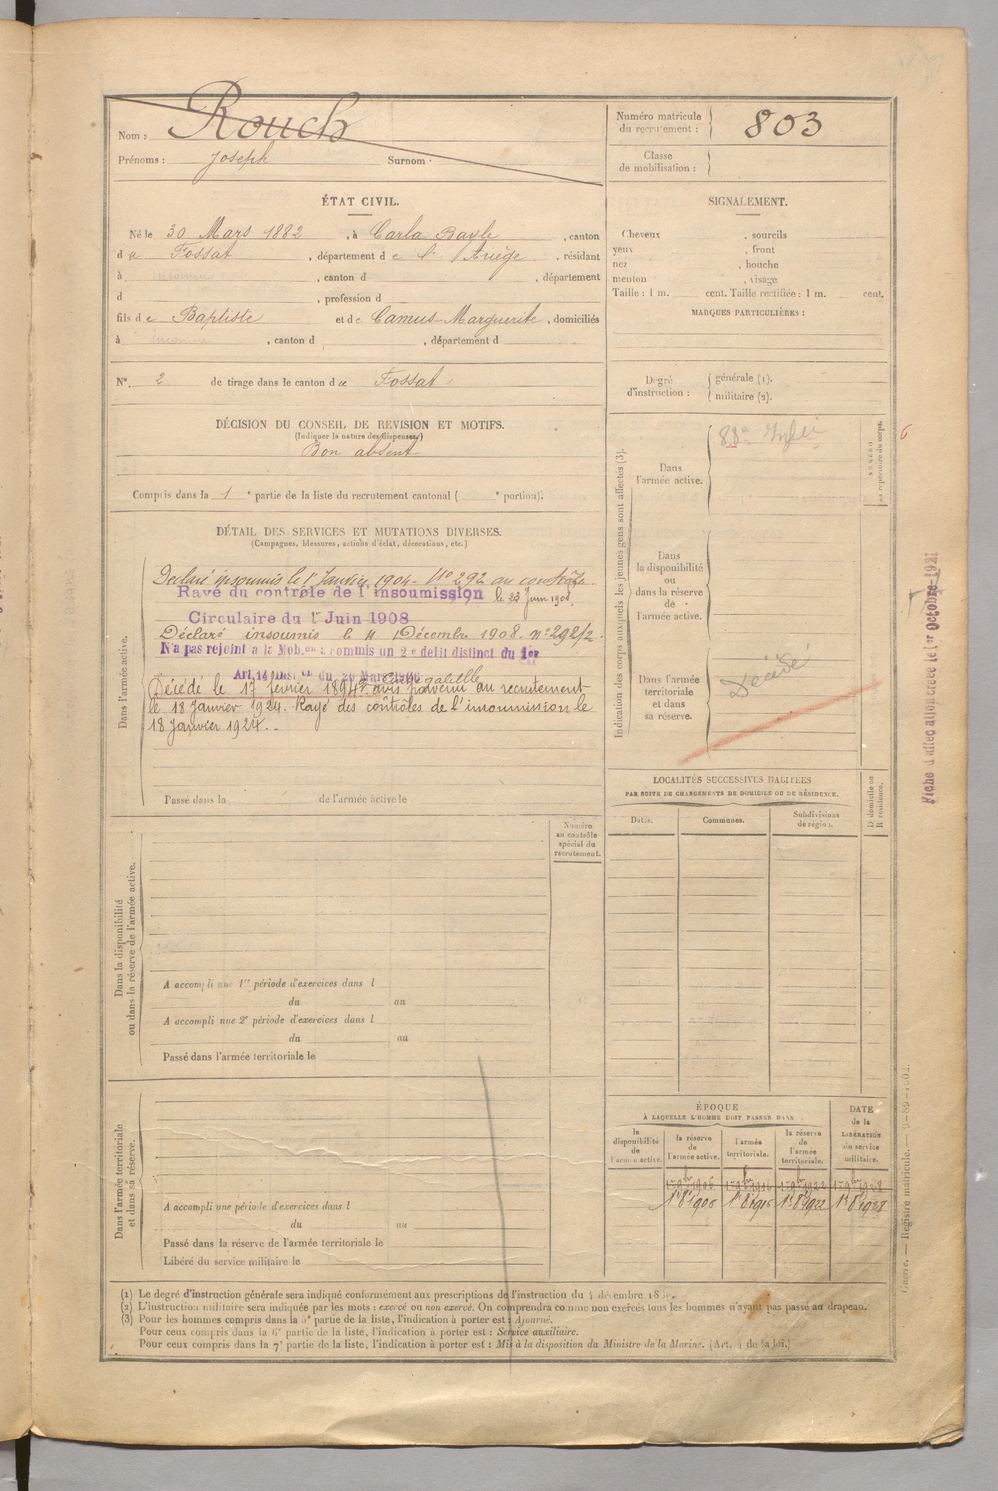 Nom : Rouch
Prénoms : Joseph Surnom
Numéro matricule
du recrutement : 803
Classe
de mobilisation :
ÉTAT CIVIL.
Né le 30 Mars 1882, à Carla Bayle, canton
du Fossat, département de l'Ariège, résidant
à inconnu, canton d, département
d, profession d
fils de Baptiste et de Camus Marguerite, domiciliés
à inconnu, canton d, département d
N° 2 de tirage dans le canton du Fossat
DÉCISION DU CONSEIL DE RÉVISION ET MOTIFS.
(Indiquer la nature des dispenses.)
Bon absent
Compris dans la 1e partie de la liste du recrutement cantonal ( e portion).
DÉTAIL DES SERVICES ET MUTATIONS DIVERSES.
(Campagnes, blessures, actions d'éclat, décorations, etc.)
Dans l'armée active.
Déclaré insoumis le 1er Janvier 1904 - No 292 au contrôle
Rayé du contrôle de l'insoumission le 23 Juin 1908
Circulaire du 1er Juin 1908
Déclaré insoumis le 11 Décembre 1908. n° 292/2
N'a pas rejoint à la Mob.on a commis un 2e délit distinct du 1er
Décédé le 17 février 1894 avis parvenu au recrutement
le 18 Janvier 1924. Rayé des contrôles de l'insoumission le
18 Janvier 1924.
Passé dans la de l'armée active le
SIGNALEMENT.
Cheveux , sourcils
yeux , front
nez , bouche
menton , visage
Taille : 1 m. cent. Taille rectifiée : 1 m. cent.
MARQUES PARTICULIÈRES :
Degré
d'instruction :
générale (1).
militaire (2).
Indication des corps auxquels les jeunes gens sont affectés (3).
Dans
l'armée active.
88e
6
Dans
la disponibilité
ou
dans la réserve
de
l'armée active.
Dans l'armée
territoriale
et dans
sa réserve.
Décédé
Fiche d'affectation créée le 1er Octobre 1921
LOCALITÉS SUCCESSIVES HABITÉES
PAR SUITE DE CHANGEMENTS DE DOMICILE OU DE RÉSIDENCE.
Dates. Communes. Subdivisions
de région.
D domicile ou
R résidence.
Dans la disponibilité
ou dans la réserve de l'armée active.
Numéro
au contrôle
spécial du
recrutement.
A accompli une 1re période d'exercices dans l
du au
A accompli une 2e période d'exercices dans l
du au
Passé dans l'armée territoriale le
Dans l'armée territoriale
et dans sa réserve.
A accompli une période d'exercices dans l
du au
Passé dans la réserve de l'armée territoriale le
Libéré du service militaire le
ÉPOQUE
À LAQUELLE L'HOMME DOIT PASSER DANS
la
disponibilité
de
l'armée active.
la réserve
de
l'armée active.
l'armée
territoriale.
la réserve
de
l'armée
territoriale.
DATE
de la
LIBÉRATION
du service
militaire.
1er 9bre 1906 1er 9bre 1916 1er 9bre 1922 1er 9bre 1928
1er 8e 1906 1er 8e 1916 1er 8e 1922 1er 8e 1928
(1) Le degré d'instruction générale sera indiqué conformément aux prescriptions de l'instruction du 4 décembre
(2) L'instruction militaire sera indiquée par les mots : exercé ou non exercé. On comprendra comme non exercés tous les hommes n'ayant pas passé au drapeau.
(3) Pour les hommes compris dans la 5e partie de la liste, l'indication à porter est : Ajourné.
Pour ceux compris dans la 6e partie de la liste, l'indication à porter est : Service auxiliaire.
Pour ceux compris dans la 7e partie de la liste, l'indication à porter est : Mis à la disposition du Ministre de la Marine. (Art. 4 de la loi.)
Guerre. — Registre matricule.